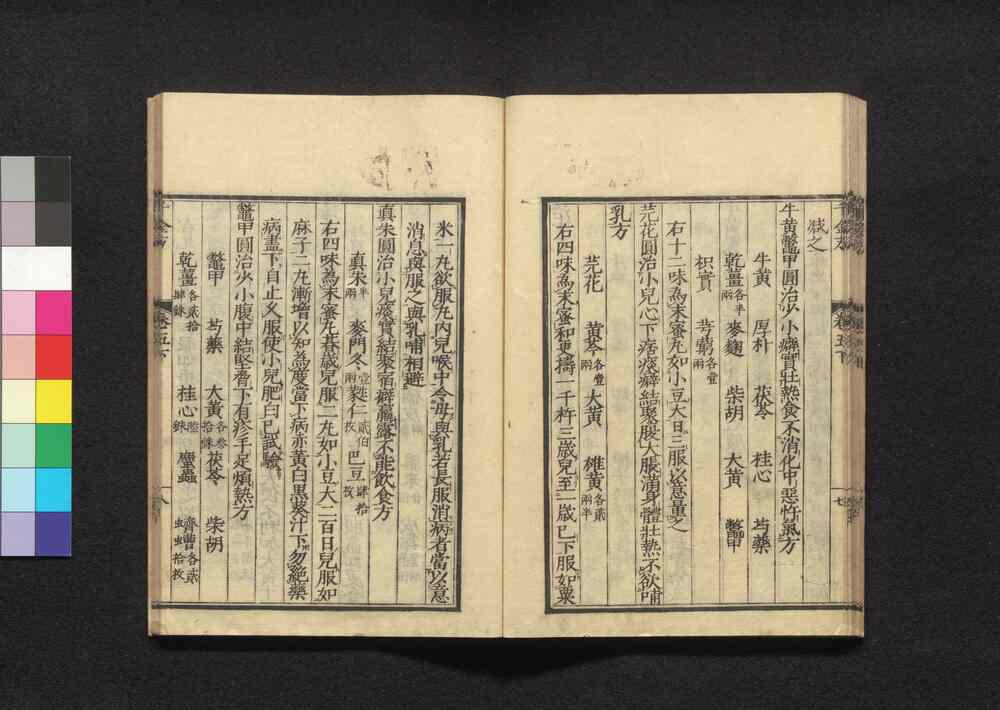 減之
牛黃鼈甲圓治少小癖實壯熱食不消化中惡忤氣方
牛黃 厚朴 茯苓 桂心 芍藥
乾薑各半兩 麥麴 柴胡 大黃 鼈甲
枳實 芎藭各壹兩
右十二味為末蜜丸如小豆大日三服以意量之
芫花圓治小兒心下痞痰癖結聚腹大脹滿身體壯熱不欲哺
乳方
芫花 黃芩各壹兩 大黃 雄黃各貳兩半
右四味為末蜜和更擣一千杵三歲兒至一歲已下服如粟
米一丸欲服丸內兒喉中令母與乳若長服消病者當以意
消息與服之與乳哺相避
真朱圓治小兒痰實結聚宿癖羸露不能飲食方
真朱半兩 麥門冬壹兩 蕤仁貳伯枚 巴豆肆拾枚
右四味為末蜜丸朞歲兒服二丸如小豆大二百日兒服如
麻子二丸漸增以知為度當下病赤黃白黑葵汁下勿絕藥
病盡下自止久服使小兒肥白已試驗
鼈甲圓治少小腹中結堅脅下有疹手足煩熱方
鼈甲 芍藥 大黃各參拾銖 茯苓 柴胡
乾薑各貳拾肆銖 桂心陸銖 䗪蟲 蠐螬各貳拾枚